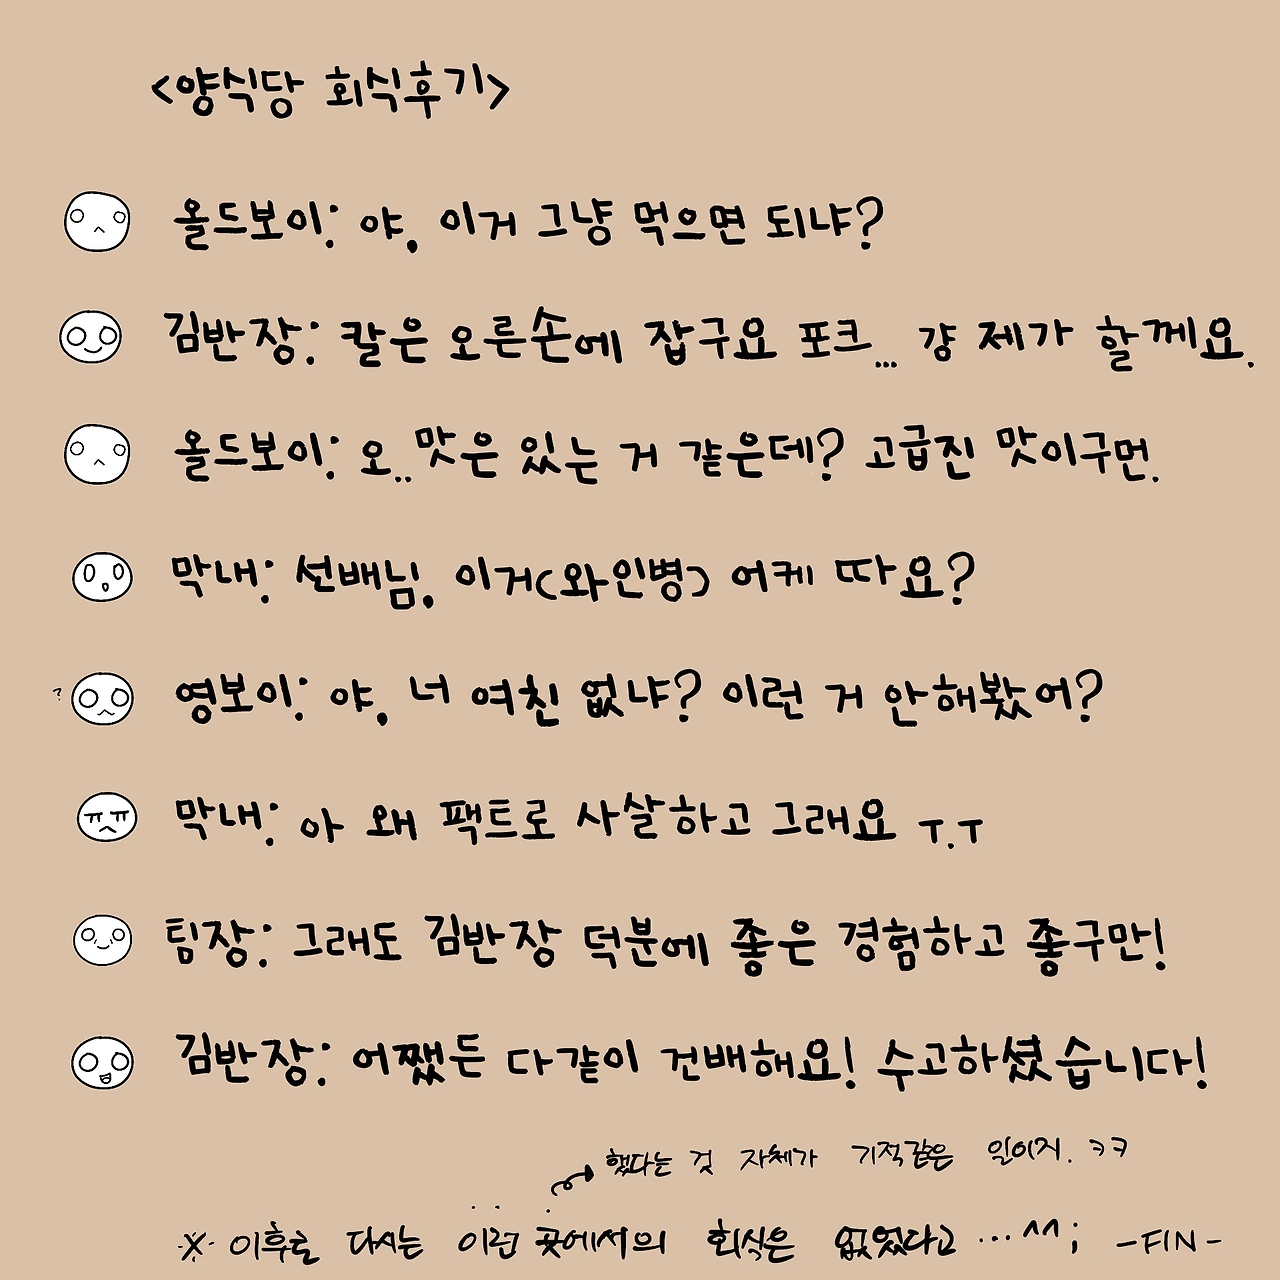 <양식당 회식후기>
올드보이: 야, 이거 그냥 먹으면 되냐?
김반장: 칼은 오른손에 잡구요 포크... 걍 제가 할께요.
올드보이: 오.. 맛은 있는 거 같은데? 고급진 맛이구먼.
막내: 선배님, 이거(와인병) 어케 따요?
?
영보이: 야, 너 여친 없냐? 이런 거 안해봤어?
막내: 아 왜 팩트로 사살하고 그래요 ㅜ.ㅜ
팀장: 그래도 김반장 덕분에 좋은 경험하고 좋구만!
김반장: 어쨌든 다같이 건배해요! 수고하셨습니다!
했다는 것 자체가 기적같은 일이지. ㅋㅋ
※ 이후로 다시는 이런 곳에서의 회식은 없었다고 ... ^^; -FIN-